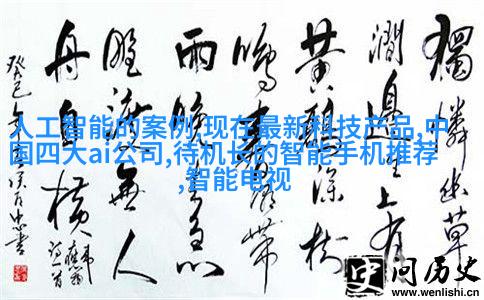 獨憐幽草
澗邊生上有
黄鸝深樹
鳴春潮帶
雨晚来急
野渡無人
舟自横
人工智能的案例,现在最新科技产品,中
国四大ai公司,待机长的智能手机推荐
,智能电视
问历史
www.wenlishi.cn